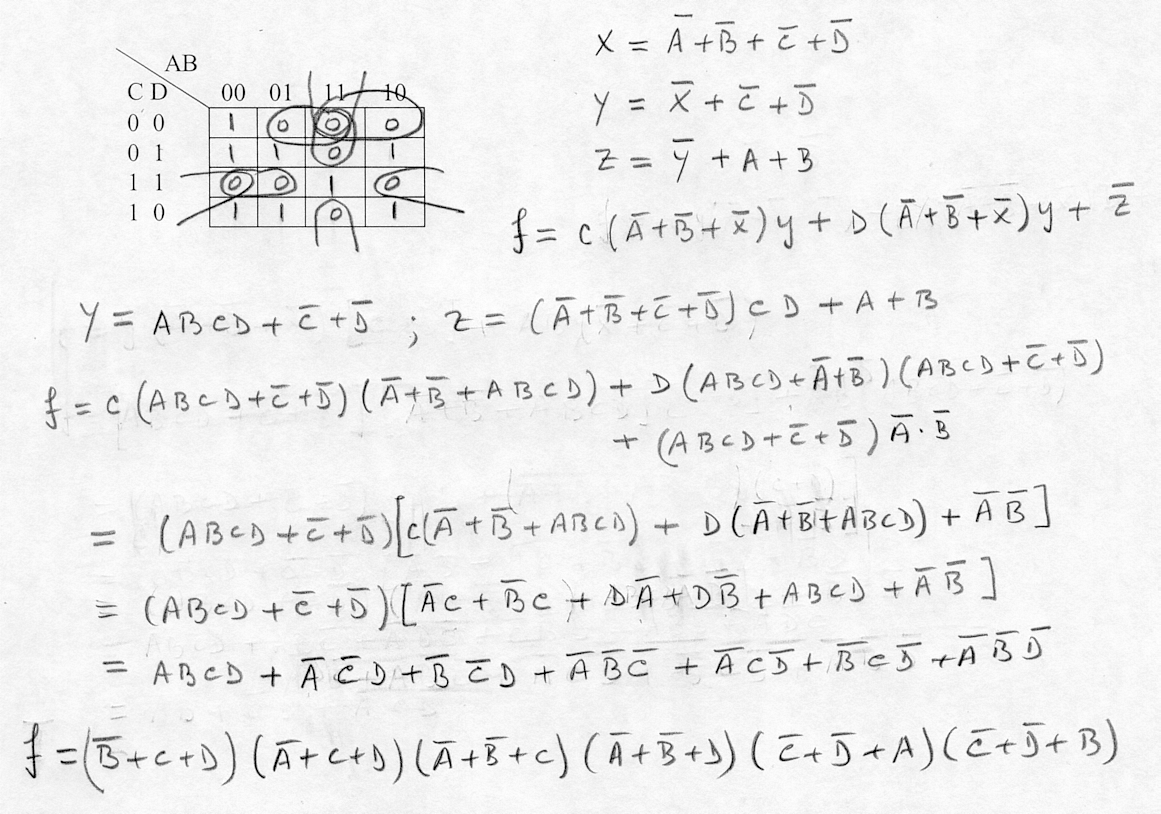 AB
C D 00 01 11 10
0 0 1 0 0 0
0 1 1 1 0 1
1 1 0 0 1 0
1 0 1 1 0 1
X = A̅ + B̅ + C̅ + D̅
Y = X̅ + C̅ + D̅
Z = Y̅ + A + B
f = C (A̅ + B̅ + X̅) Y + D (A̅ + B̅ + X̅) Y + Z̅
Y = ABCD + C̅ + D̅ ; Z = (A̅ + B̅ + C̅ + D̅) CD + A + B
f = C (ABCD + C̅ + D̅) (A̅ + B̅ + ABCD) + D (ABCD + A̅ + B̅) (ABCD + C̅ + D̅)
+ (ABCD + C̅ + D̅) A̅ · B̅
= (ABCD + C̅ + D̅) [C(A̅ + B̅ + ABCD) + D (A̅ + B̅ + ABCD) + A̅ B̅]
= (ABCD + C̅ + D̅) [A̅C + B̅C + DA̅ + DB̅ + ABCD + A̅ B̅]
= ABCD + A̅ C̅ D + B̅ C̅ D + A̅ B̅ C̅ + A̅ C D̅ + B̅ C D̅ + A̅ B̅ D̅
f = (B̅ + C + D) (A̅ + C + D) (A̅ + B̅ + C) (A̅ + B̅ + D) (C̅ + D̅ + A) (C̅ + D̅ + B)